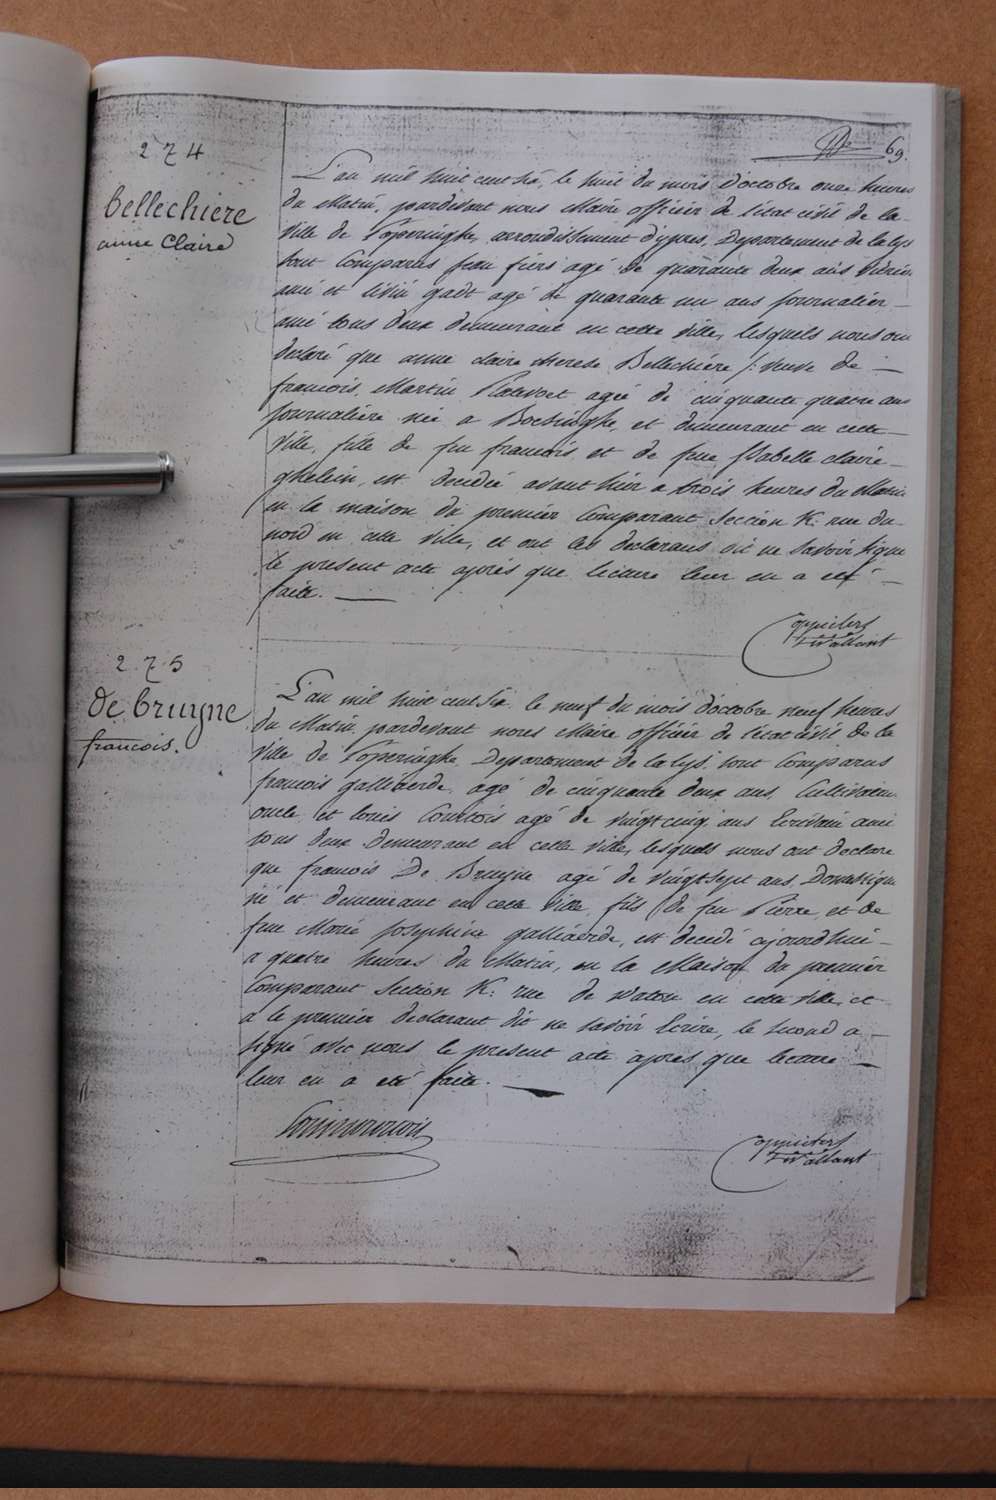 69.
274
Bellechiere
anne Claire
L'an mil huit cent six, le huit du mois d'octobre onze heures
du Matin, pardevant nous Maire officier de l'état civil de la
ville de Poperinghe, arrondissement d'ypres, Departement de la lys
sont Comparus jean fiers agé de quarante deux ans
ami et livin gadt agé de quarante un ans journalier
ami tous deux demeurant en cette ville, lesquels nous on
declaré que anne claire therese Bellechiére /: veuve de
francois Martin agée de cinquante quatre ans
journaliére née a Boesinghe, et demeurant en cette
ville, fille de feu francois et de feue isabelle claire
ghelein, est decedée avant hier a trois heures du Matin
en la maison du premier Comparant Section K: rue du
nord en cette ville, et ont les declarans dit ne savoir signe
le present acte après que lecture leur en a eté
faite.
275
de bruyne
francois.
L'an mil huit cent Six, le neuf du mois d'octobre neuf heures
du Matin, pardevant nous Maire officier de l'état civil de la
ville de Poperinghe, Departement de la Lys, sont Comparus
francois galliaerde, agé de cinquante deux ans, Cultivateur
oncle, et louis Courtois agé de vingt cinq ans Ecrivain ami
tous deux demeurant en cette ville, lesquels nous ont declare
que francois De Bruyne agé de vingt sept ans, Domestique
né et demeurant en cette ville, fils de feu Pierre, et de
feue Marie Josephine galliaerde, est decedé ajourdhui
a quatre heures du Matin, en la Maison du premier
Comparant Section K: rue de Watou en cette ville, et
a le premier declarant dit ne savoir Ecrire, le second a
signé avec nous le present acte après que lecture
leur en a eté faite.